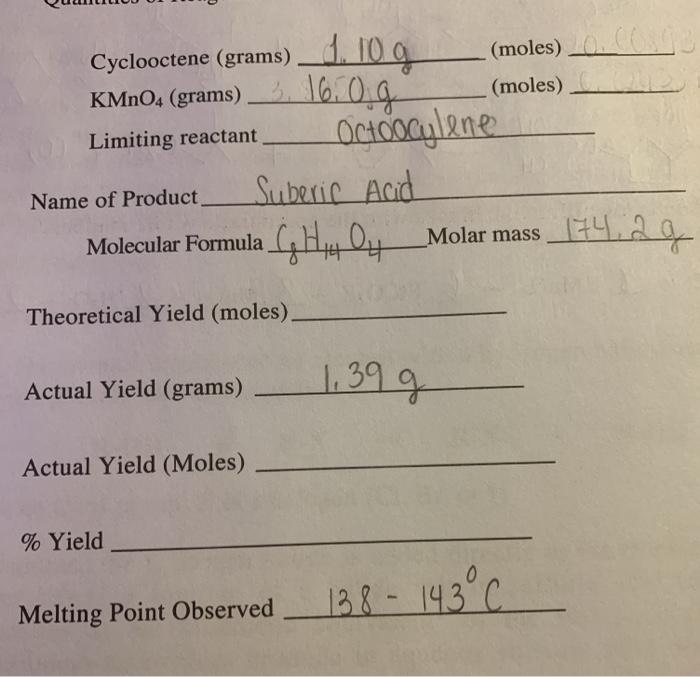 Cyclooctene (grams) 1.10 g (moles)
KMnO4 (grams) 16.0 g (moles)
Limiting reactant Octoocylene
Name of Product Suberic Acid
Molecular Formula C8H14O4 Molar mass 174.2 g
Theoretical Yield (moles)
Actual Yield (grams) 1.39 g
Actual Yield (Moles)
% Yield
Melting Point Observed 138 - 143°C